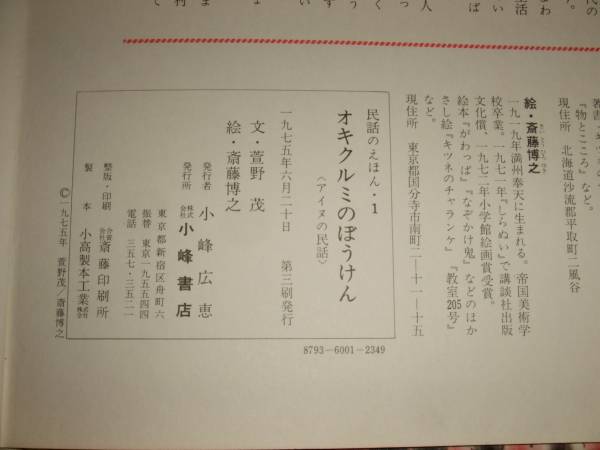 『物とこころ』など。
現住所　北海道沙流郡平取町二風谷
絵・斎藤博之
一九一九年満州奉天に生まれる。帝国美術学
校卒業。一九七一年『しらぬい』で講談社出版
文化賞、一九七二年小学館絵画賞受賞。
絵本『がわっぱ』『なぞかけ鬼』などのほか
さし絵『キツネのチャランケ』『教室205号』
など。
現住所　東京都国分寺市南町二―十一―十五
民話のえほん・1
オキクルミのぼうけん
〈アイヌの民話〉
一九七五年六月二十日　第三刷発行
文・萱野　茂
絵・斎藤博之
発行者　小峰広恵
発行所　株式会社　小峰書店
東京都新宿区舟町六
振替　東京一九五五四四
電話　三五七・三五二一
整版・印刷　合資会社　斎藤印刷所
製　本　小高製本工業株式会社
©一九七五年　萱野茂／斎藤博之
8793-6001-2349